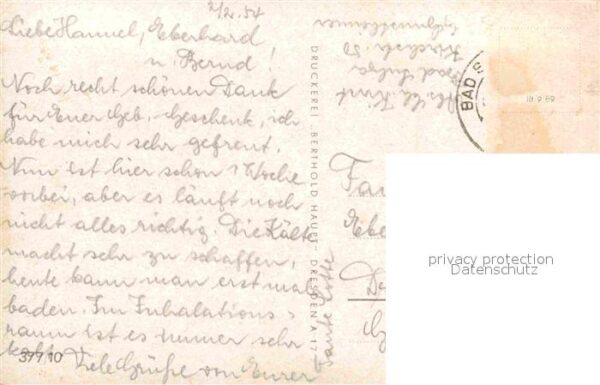 2/2. 54
Liebe Hannel, Eberhard
u. Bernd!
Noch recht schönen Dank
für Euer Geb. Geschenk, ich
habe mich sehr gefreut.
Nun ist hier schon 1 Woche
vorbei, aber es läuft noch
nicht alles richtig. Die Kälte
macht sehr zu schaffen,
heute kann man erst mal
baden. Im Inhalations-
raum ist es immer sehr
kalt. Viele Grüße von Eurer
Tante Lotte
377/10
DRUCKEREI BERTHOLD HAUPT DRESDEN A 17
Bad Sulza
BAD S
18 9 69
Fa
Ebe
privacy protection
Datenschutz